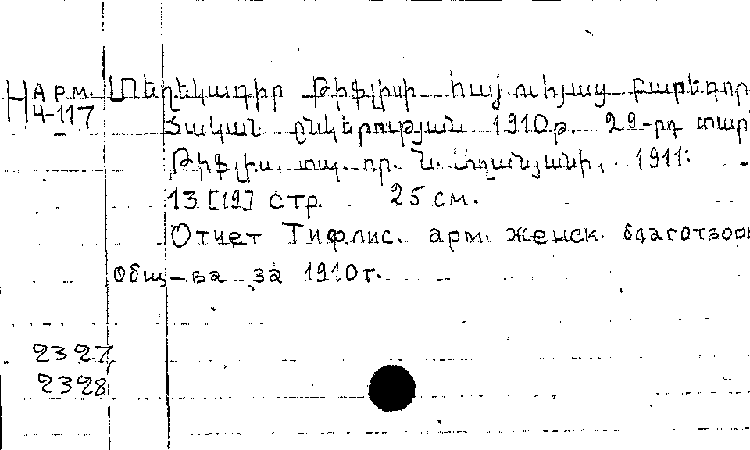 Н арм. Տեղեկագիր Թիֆլիսի հայ ուհյաց բարեգոր
4-117 ծական ընկերության 1910թ. 29-րդ տար
Թիֆլիս. տպ. օր. Ն. Աղանյանի, 1911:
13 [19] стр. 25 см.
Отчет Тифлис. арм. женск. благотвор
общ-ва за 1910г.
2327
2328